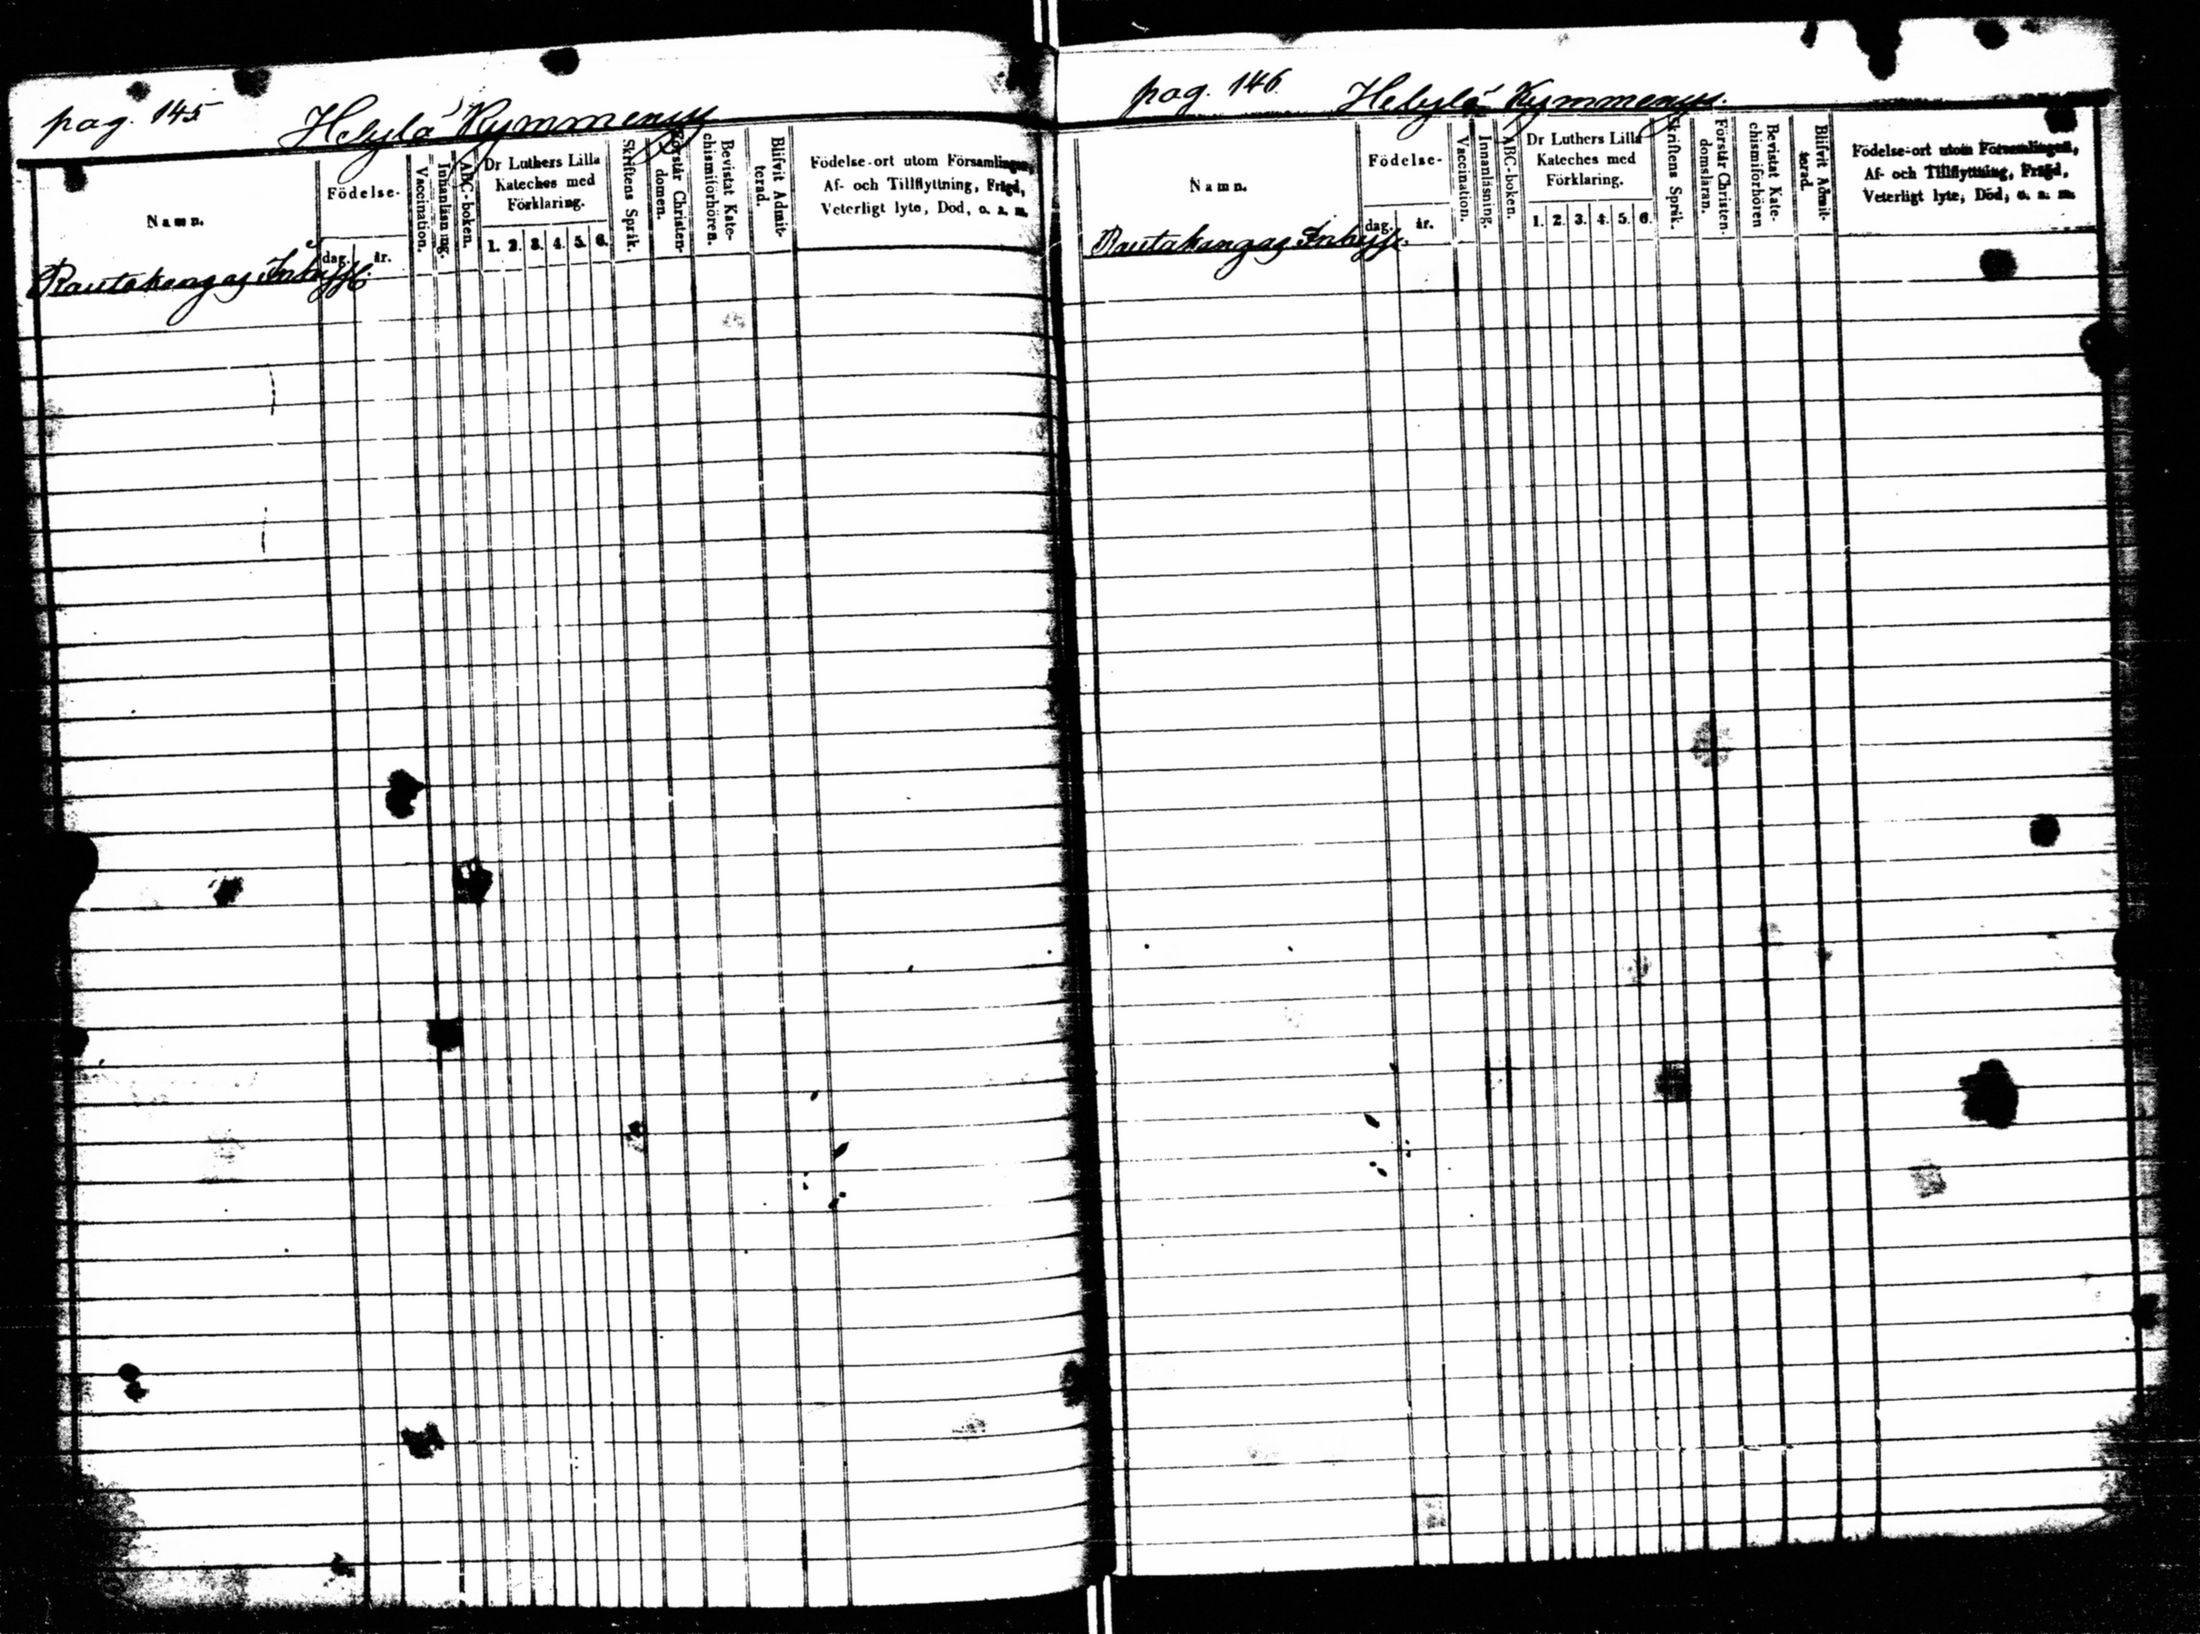 pag. 145 Helylä Kymmenys
Namn.
Födelse-
dag. år.
Vaccination.
Innanläsning.
ABC-boken.
Dr Luthers Lilla
Kateches med
Förklaring.
1. 2. 3. 4. 5. 6.
Skriftens Språk.
Förstår Christen-
domen.
Bevistat Kate-
chismiförhören.
Blifvit Admit-
terad.
Födelse-ort utom Församlingen,
Af- och Tillflyttning, Frägd,
Veterligt lyte, Död, o. s. m.
Rautakangas Inhyss.
pag. 146 Helylä Kymmenys.
Namn.
Födelse-
dag. år.
Vaccination.
Innanläsning.
ABC-boken.
Dr Luthers Lilla
Kateches med
Förklaring.
1. 2. 3. 4. 5. 6.
Skriftens Språk.
Förstår Christen-
domsläran.
Bevistat Kate-
chismiförhören
Blifvit Admit-
terad.
Födelse-ort utom Församlingen,
Af- och Tillflyttning, Frägd,
Veterligt lyte, Död, o. s. m.
Rautakangas Inhyss.